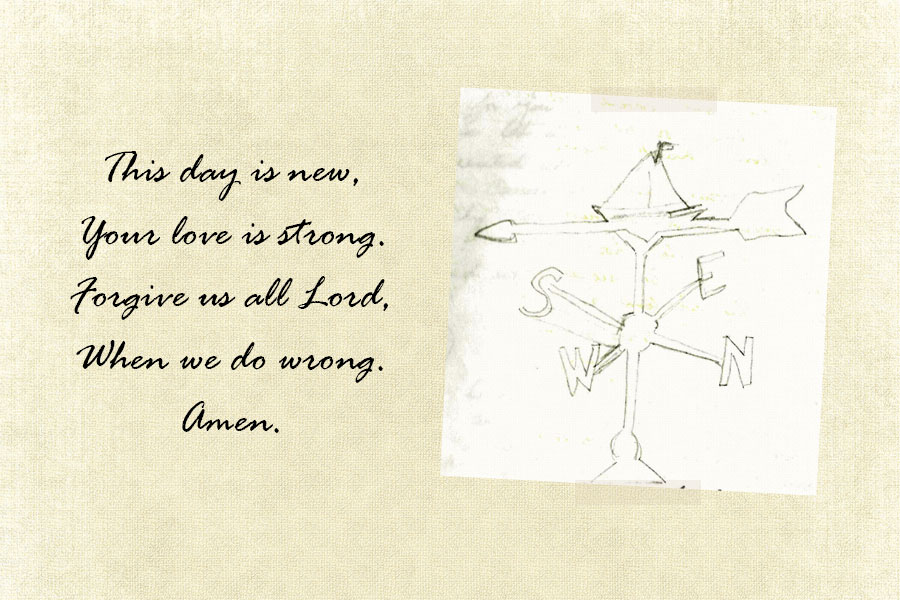 This day is new,
Your love is strong.
Forgive us all Lord,
When we do wrong.
Amen.
S E
W N